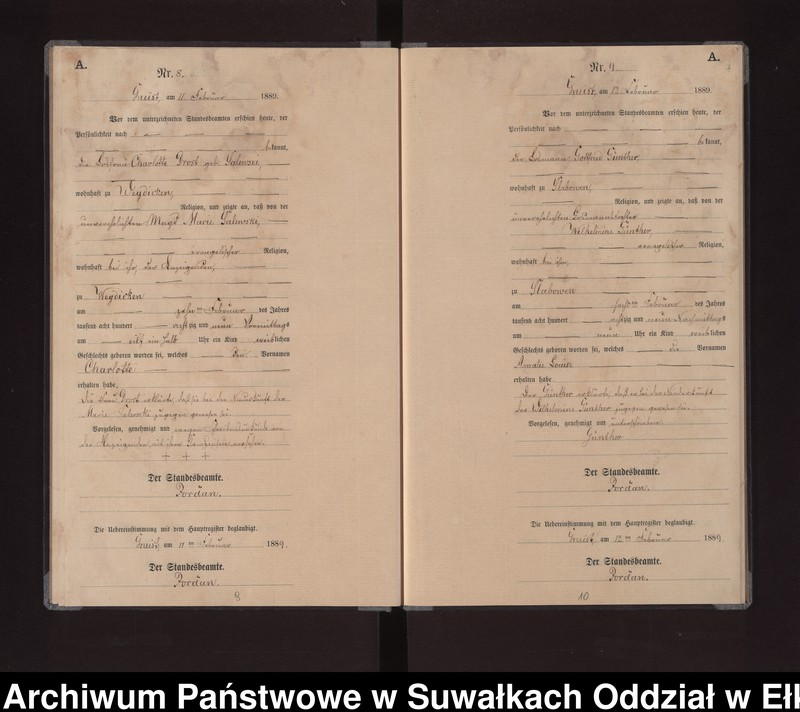 A.
Nr. 8.
Gneist, am 11 Februar 1889.
Vor dem unterzeichneten Standesbeamten erschien heute, der
Persönlichkeit nach
bekannt,
die Charlotte Drost geb. Salewski,
wohnhaft zu Weydicken,
Religion, und zeigte an, daß von der
unverehelichten Magd Marie Salewski,
evangelischer Religion,
wohnhaft bei ihr, der Anzeigenden,
zu Weydicken
am zehnten Februar des Jahres
tausend acht hundert achtzig und neun Vormittags
um elf ein halb Uhr ein Kind weiblichen
Geschlechts geboren worden sei, welches den Vornamen
Charlotte
erhalten habe.
Die Frau Drost erklärte, daß sie bei der Niederkunft der
Marie Salewski zugegen gewesen sei.
Vorgelesen, genehmigt und wegen Schreibunkunde von
der Anzeigenden mit ihrem Handzeichen versehen.
+ + +
Der Standesbeamte.
Jordan.
Die Uebereinstimmung mit dem Hauptregister beglaubigt.
Gneist, am 11 ten Februar 1889.
Der Standesbeamte.
Jordan.
8
A.
Nr. 9
Gneist, am 12 Februar 1889.
Vor dem unterzeichneten Standesbeamten erschien heute, der
Persönlichkeit nach
bekannt,
der Gottlieb Günther,
wohnhaft zu Slabowen,
Religion, und zeigte an, daß von der
unverehelichten
Wilhelmine Günther,
evangelischer Religion,
wohnhaft bei ihm,
zu Slabowen
am sechsten Februar des Jahres
tausend acht hundert achtzig und neun Nachmittags
um neun Uhr ein Kind weiblichen
Geschlechts geboren worden sei, welches die Vornamen
Amalie Louise
erhalten habe
Der Günther erklärte, daß er bei der Niederkunft
der Wilhelmine Günther zugegen gewesen sei.
Vorgelesen, genehmigt und unterschrieben
Günther
Der Standesbeamte.
Jordan.
Die Uebereinstimmung mit dem Hauptregister beglaubigt.
Gneist, am 12 ten Februar 1889
Der Standesbeamte.
Jordan.
10
Archiwum Państwowe w Suwałkach Oddział w Ełk